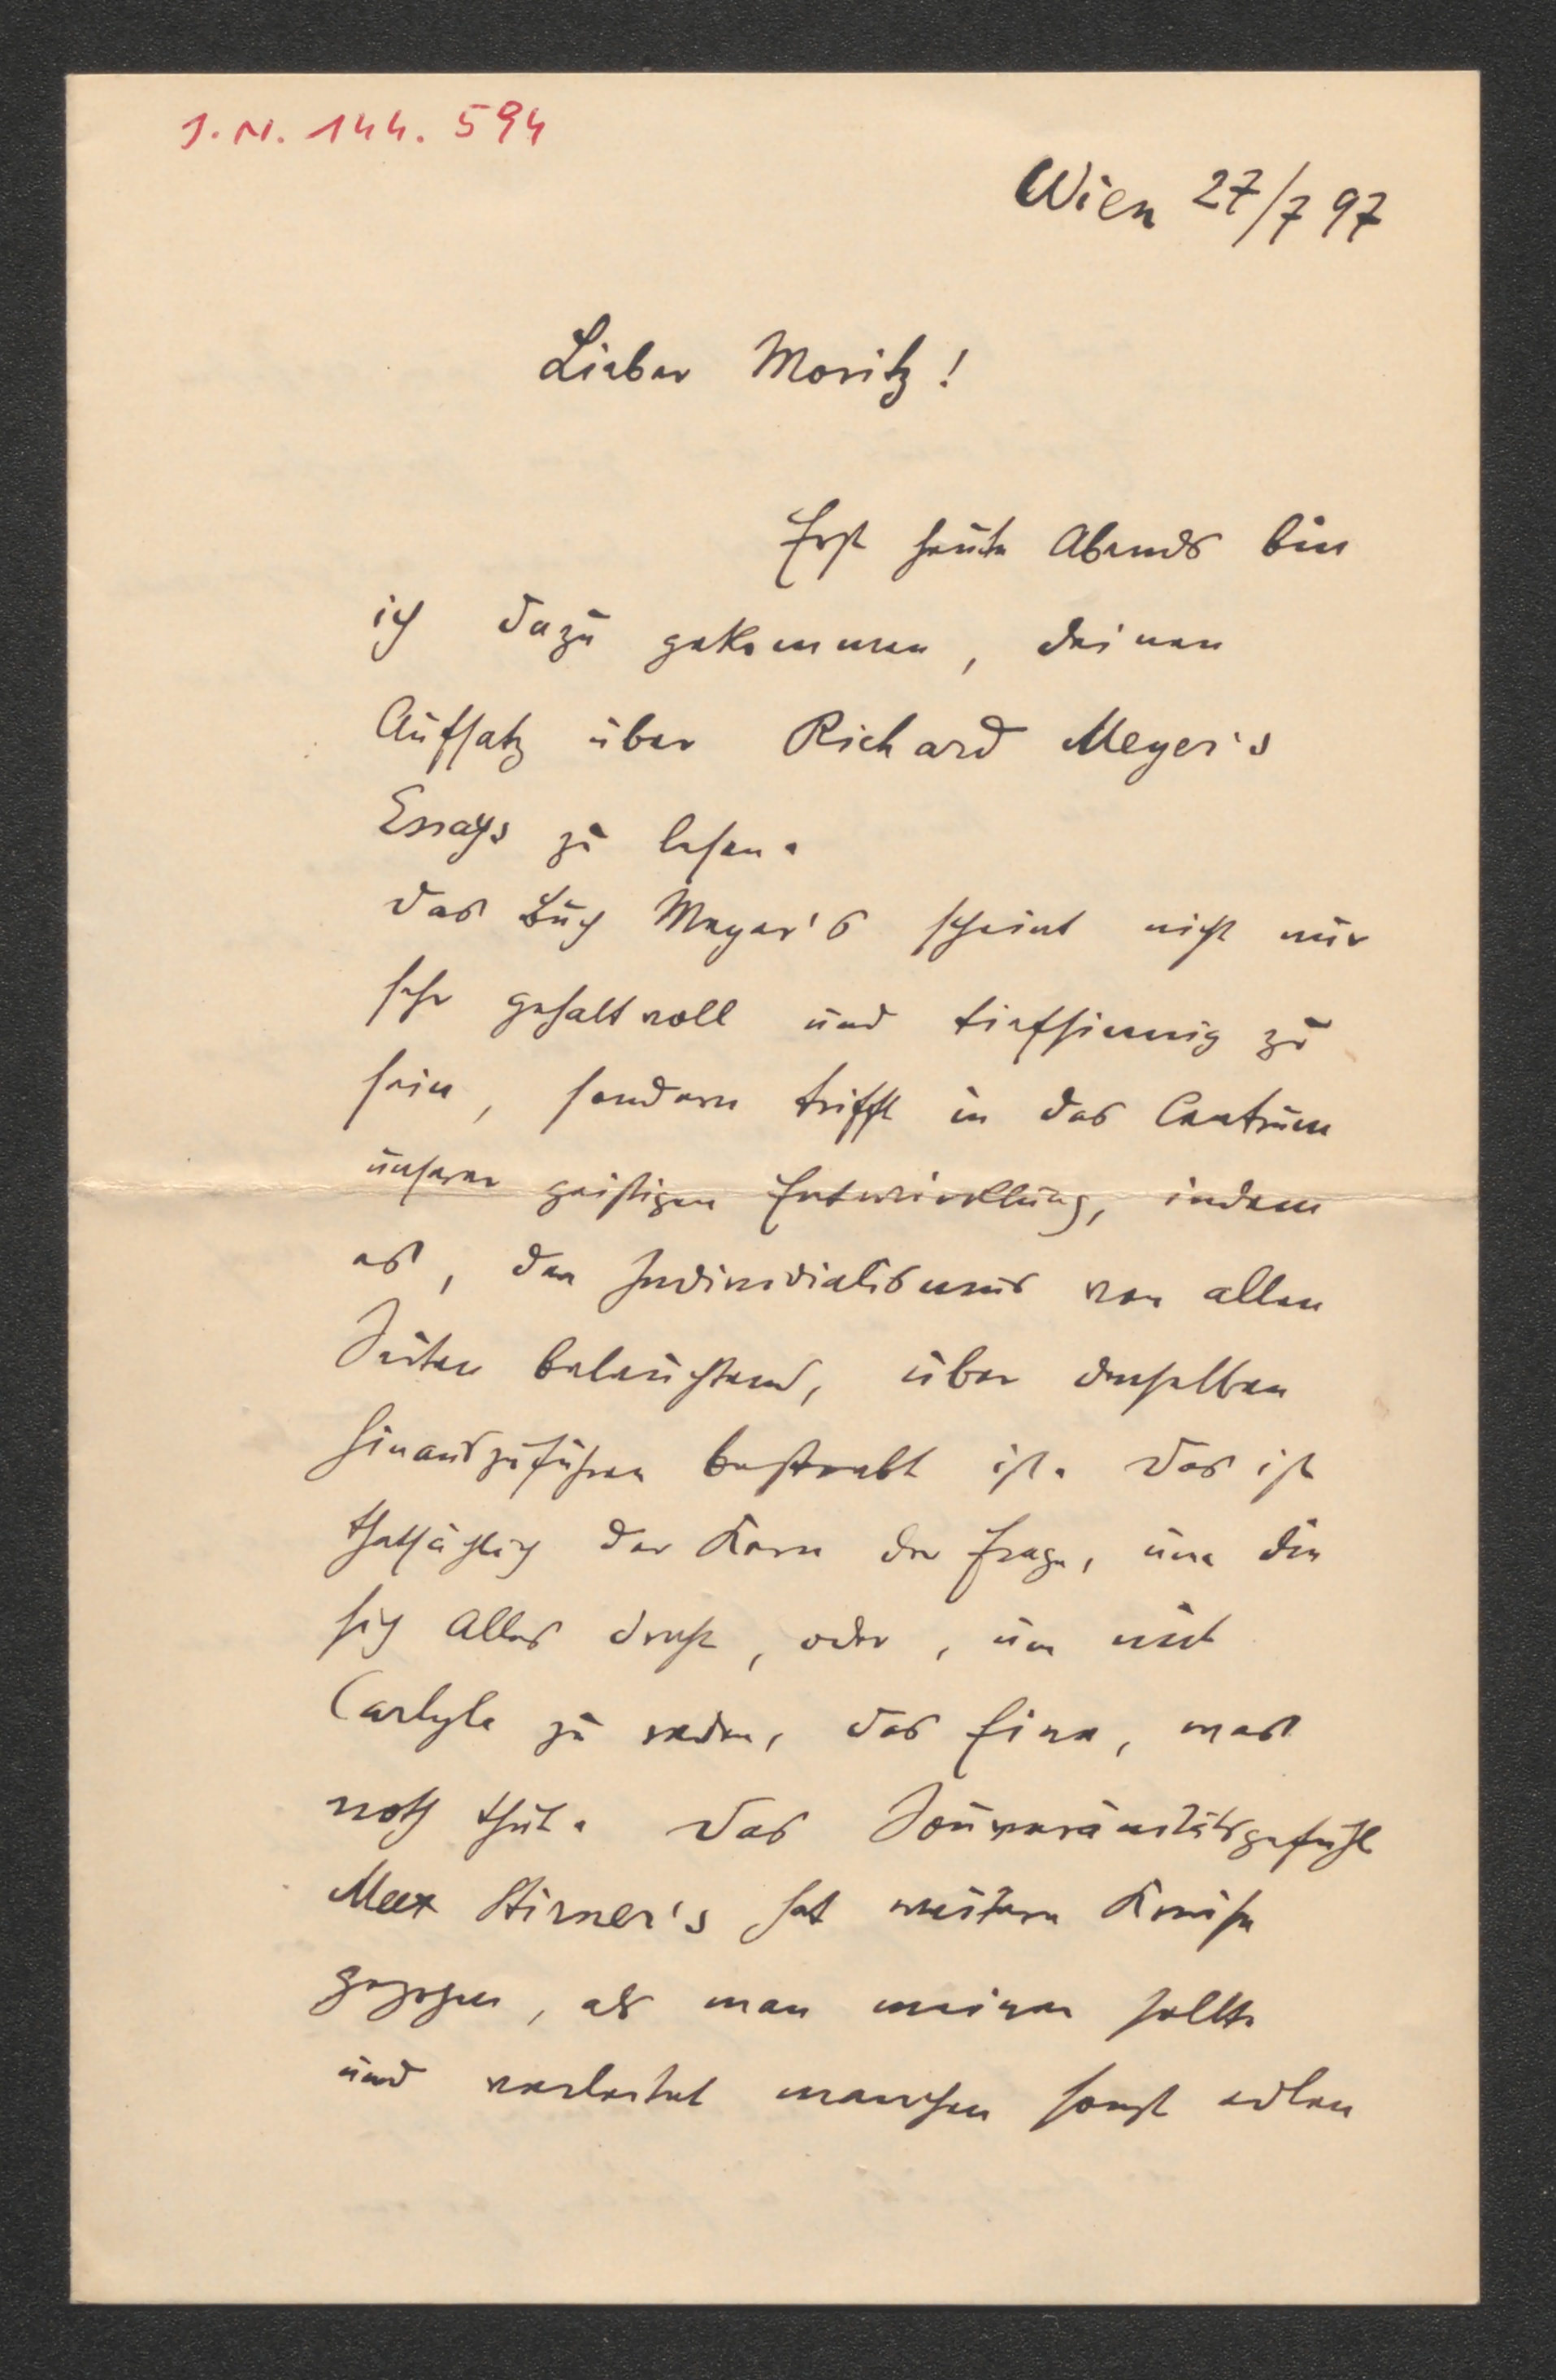 J. N. 144. 594
Wien 27/7 97
Lieber Moritz!
Erst heute Abends bin
ich dazu gekommen, deinen
Aufsatz über Richard Meyer's
Essays zu lesen.
Das Buch Meyer's scheint nicht nur
sehr gehaltvoll und tiefsinnig zu
sein, sondern trifft in das Centrum
unserer geistigen Entwicklung, indem
es, den Individialismus von allen
Seiten beleuchtend, über denselben
hinauszuführen bestrebt ist. Das ist
thatsächlich der Kern der Frage, um die
sich Alles dreht, oder, um mit
Carlyle zu reden, das Eine, was
noth thut. Das Souveränitätsgefühl
Max Stirner's hat weitere Kreise
gezogen, als man meinen sollte
und verleitet manchen sonst edlen